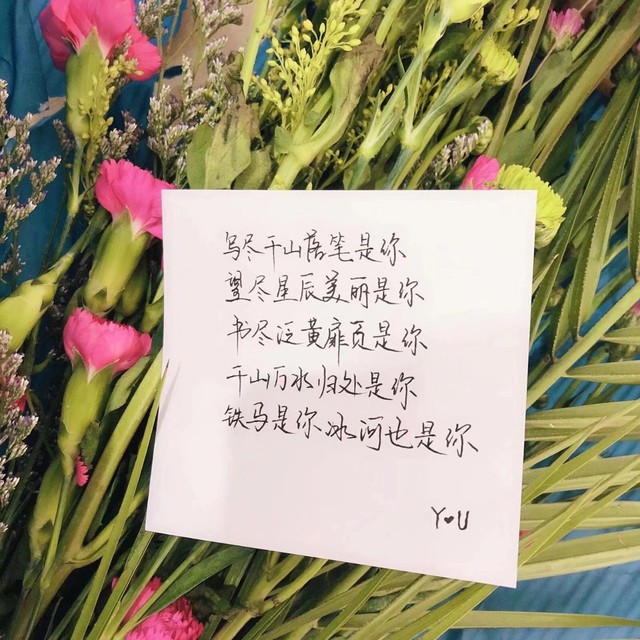 写尽千山落笔是你
望尽星辰美丽是你
书尽泛黄扉页是你
千山万水归处是你
铁马是你冰河也是你
Y♥U